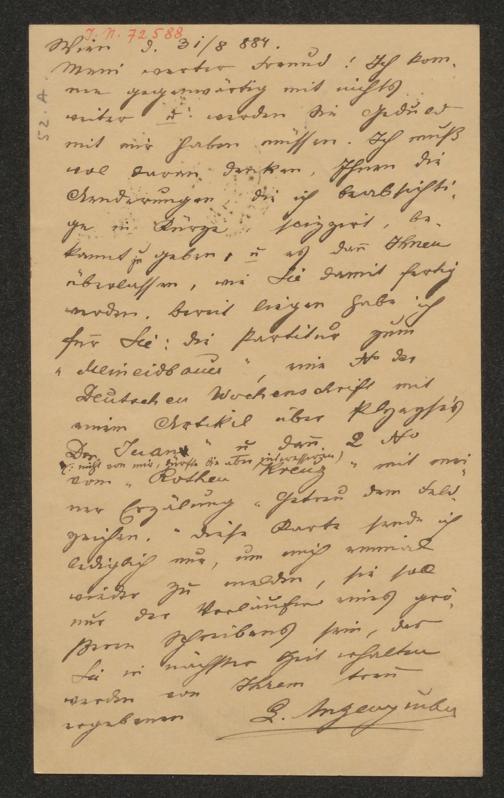 J. N. 72588
52. A
Wien d. 31/8 884.
Mein werter Freund! Ich kom-
me gegenwärtig mit nichts
weiter u werden Sie Geduld
mit mir haben müssen. Ich muß
wol daran denken, Ihnen die
Aenderungen, die ich beabsichti-
ge in Kürze, skizzirt, be-
kannt zu geben, u es dann Ihnen
überlassen, wie Sie damit fertig
werden. Bereit liegen habe ich
für Sie: die Partitur zum
"Meineidbauer", eine No der
Deutschen Wochenschrift mit
einem Artikel über
"Don Juan" u dann 2 No
(: nicht von mir, dürfte Sie aber interessiren)
vom "Rothen Kreuz" mit mei-
ner Erzälung "Getreu dem Feld-
zeichen." Diese Karte sende ich
lediglich nur, um mich einmal
wieder zu melden, sie soll
nur der Vorläufer eines grö-
ßeren Schreibens sein, das
Sie in nächster Zeit erhalten
werden von Ihrem treu
ergebenen L. Anzengruber